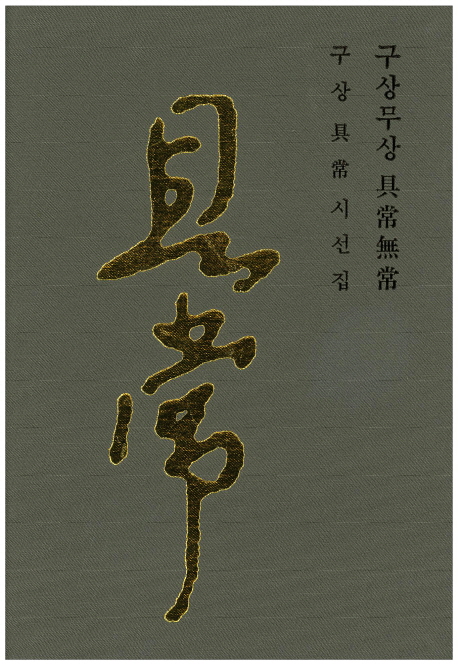 구상무상 具常無常
구상 具常 시선집
具常